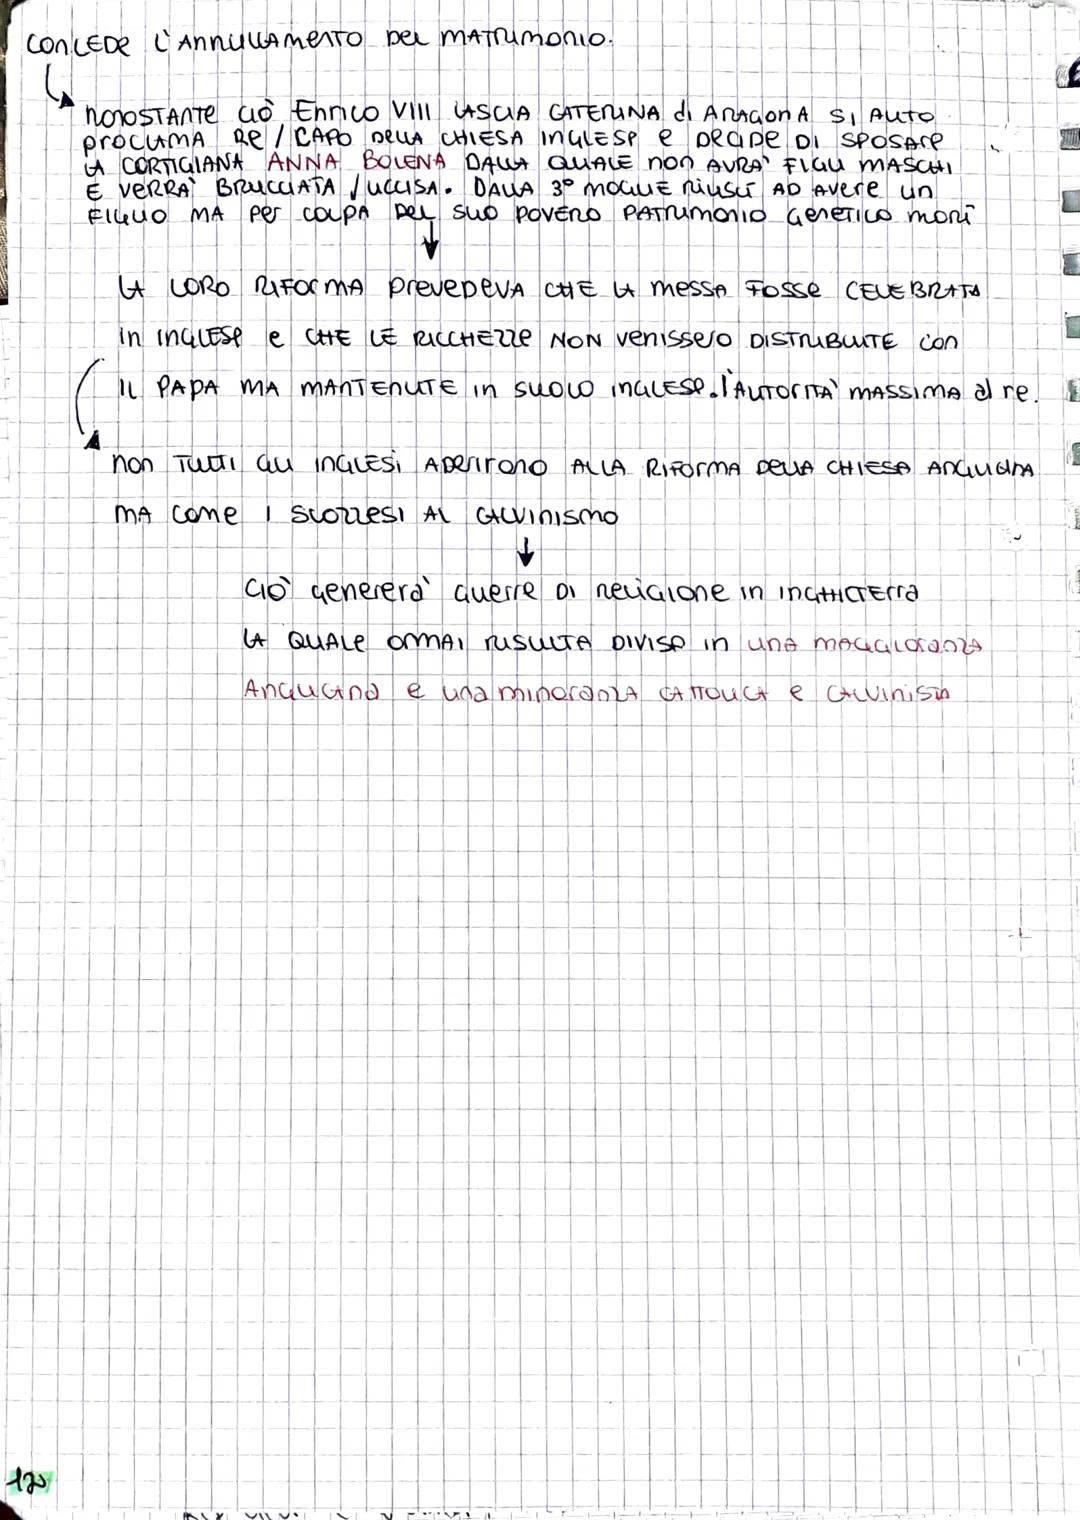 CONCEDE L'ANNULLAMENTO DEL MATRIMONIO.
NONOSTANTE CIÒ ENRICO VIII LASCIA CATERINA di ARAGONA SI AUTO
PROCLAMA RE / CAPO DELLA CHIESA INGLESE E DECIDE DI SPOSARE
LA CORTIGIANA ANNA BOLENA DALLA QUALE NON AVRA' FIGLI MASCHI
E VERRA' BRUCCIATA / UCCISA. DALLA 3° MOGLIE RIUSCÌ AD AVERE UN
FIGLIO MA PER COLPA DEL SUO POVERO PATRIMONIO GENETICO MORÌ
LA LORO RIFORMA PREVEDEVA CHE LA MESSA FOSSE CELEBRATA
IN INGLESE E CHE LE RICCHEZZE NON VENISSERO DISTRIBUITE CON
IL PAPA MA MANTENUTE IN SUOLO INGLESE. L'AUTORITA' MASSIMA al RE.
NON TUTTI GLI INGLESI ADERIRONO ALLA RIFORMA DELLA CHIESA ANGLICANA
MA COME I SCOZZESI AL CALVINISMO
CIÒ GENERERA' GUERRE DI RELIGIONE IN INGHILTERRA
LA QUALE ORMAI RISULTA DIVISA IN UNA MAGGIORANZA
ANGLICANA E UNA MINORANZA CATTOLICA E CALVINISTA